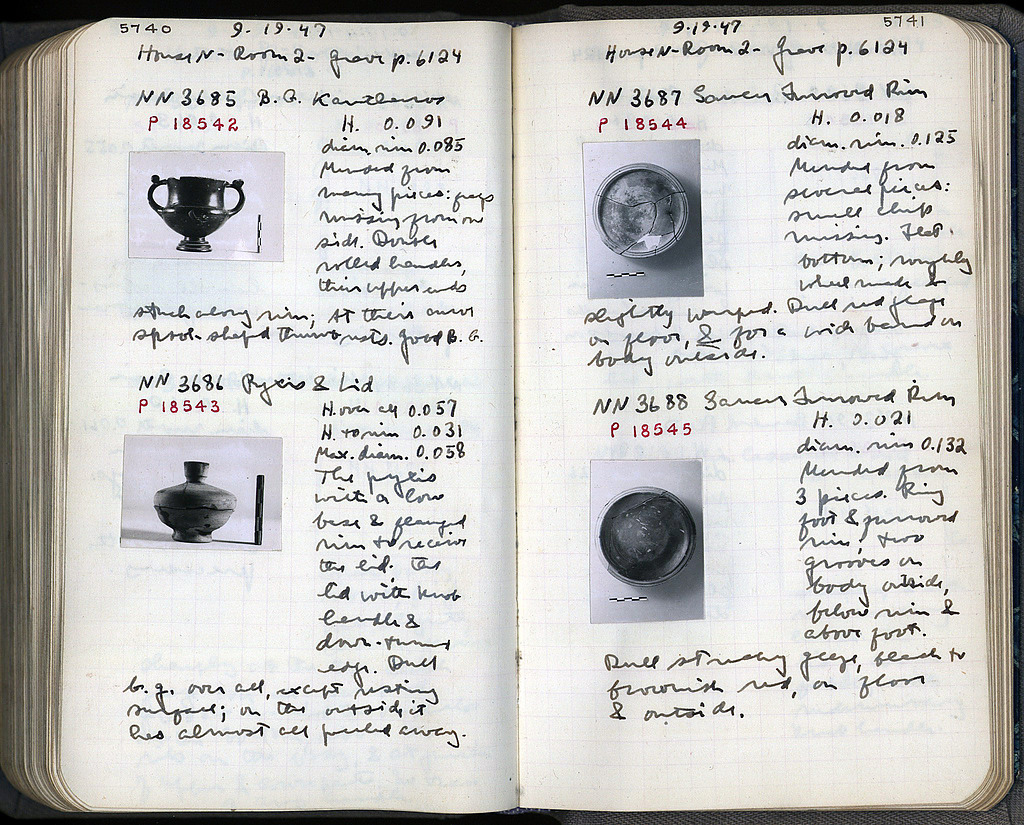 5740 9.19.47
House N - Room 2 - Grave p. 6124
NN 3685 B.G. Kantharos
P 18542 H. 0.091
diam. rim 0.085
Mended from
many pieces: frags
missing from one
side. Double
rolled handles,
their upper ends
stuck along rim; at their curves
spool-shaped thumb rests. Good B.G.
NN 3686 Pyxis & Lid
P 18543 H. over all 0.057
H. to rim 0.031
Max. diam. 0.058
The pyxis
with a low
base & flanged
rim to receive
the lid. The
lid with knob
handle &
down-turned
edge. Dull
b.g. over all, except resting
surface; on the outside it
has almost all peeled away.
5741
9.19.47
House N - Room 2 - Grave p. 6124
NN 3687 Saucer Furrowed Rim
P 18544 H. 0.018
diam. rim. 0.125
Mended from
several pieces:
small chip
missing. Flat
bottom; roughly
wheelmade &
slightly warped. Dull red glaze
on floor, & for a wide band on
body outside.
NN 3688 Saucer Furrowed Rim
P 18545 H. 0.021
diam. rim 0.132
Mended from
3 pieces. Ring
foot & furrowed
rim; two
grooves on
body outside,
below rim &
above foot.
Dull streaky glaze, black to
brownish red, on floor
& outside.